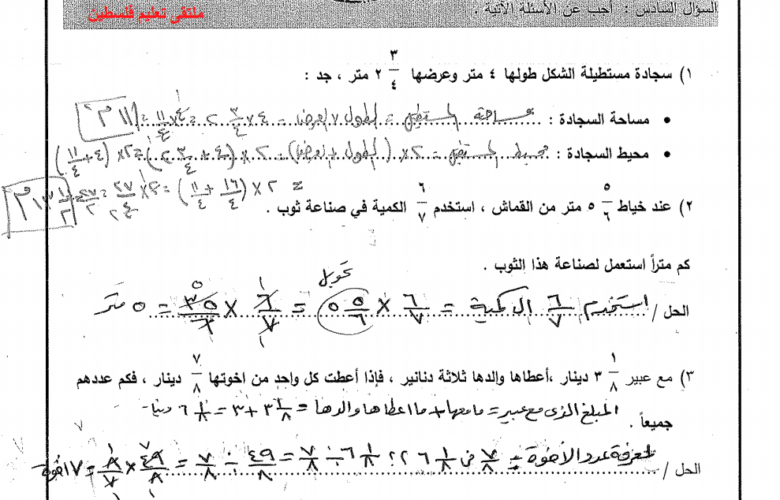 السؤال السادس : أجب عن الأسئلة الآتية .
ملتقى تعليم فلسطين
١) سجادة مستطيلة الشكل طولها ٤ متر وعرضها ٢ ٣/٤ متر ، جد :
• مساحة السجادة : مساحة المستطيل = الطول × العرض = ٤ × ٢ ٣/٤ = ٤ × ١١/٤ = ١١ م٢
• محيط السجادة : محيط المستطيل = ٢ × (الطول + العرض) = ٢ × (٤ + ٢ ٣/٤) = ٢ × (٤ + ١١/٤)
= ٢ × (١٦/٤ + ١١/٤) = ٢ × ٢٧/٤ = ٢٧/٢ = ١٣ ١/٢ م
٢) عند خياط ٥ ٥/٦ متر من القماش ، استخدم ٦/٧ الكمية في صناعة ثوب .
كم متراً استعمل لصناعة هذا الثوب .
تحويل
الحل / استخدم ٦/٧ الكمية = ٦/٧ × ٥ ٥/٦ = ٦/٧ × ٣٥/٦ = ٥ متر
٣) مع عبير ٣ ١/٨ دينار ،أعطاها والدها ثلاثة دنانير ، فإذا أعطت كل واحد من اخوتها ٧/٨ دينار ، فكم عددهم
جميعاً . المبلغ الذي مع عبير = ما معها + ما اعطاها والدها = ٣ ١/٨ + ٣ = ٦ ١/٨
الحل / لمعرفة عدد الأخوة = ٧/٨ في ٦ ١/٨ ؟؟ ٦ ١/٨ ÷ ٧/٨ = ٤٩/٨ ÷ ٧/٨ = ٤٩/٨ × ٨/٧ = ٧ اخوة